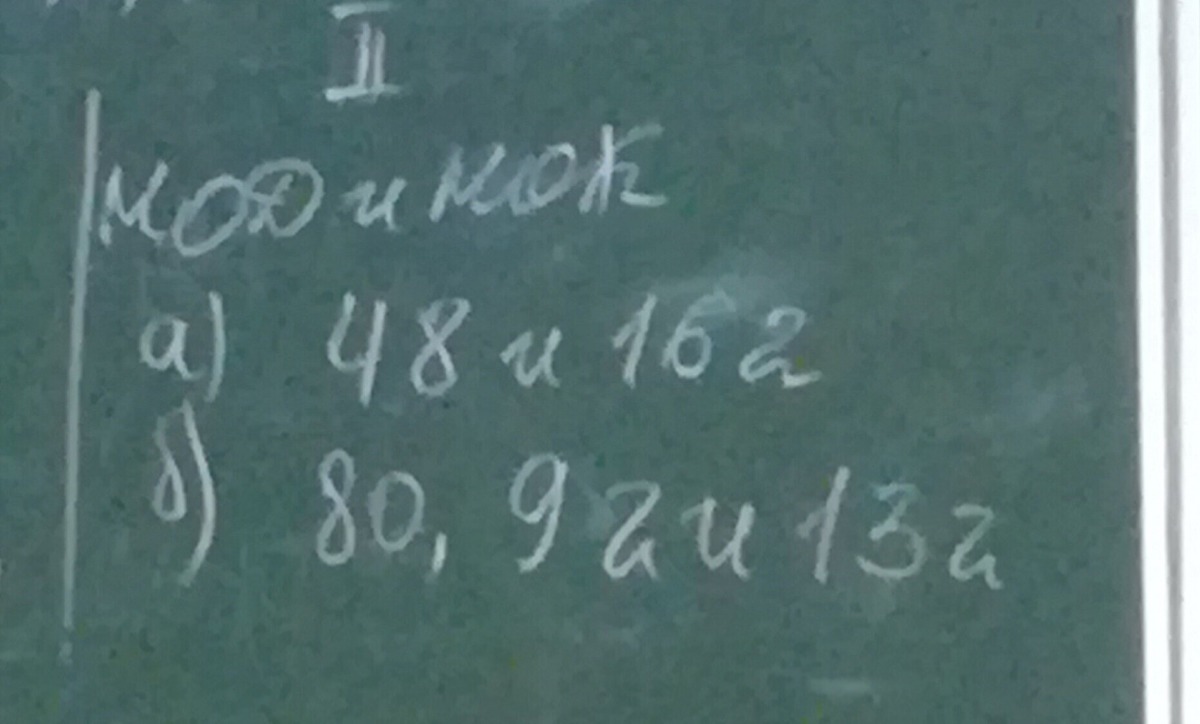 II
НОД и НОК
а) 48 и 162
б) 80, 92 и 132